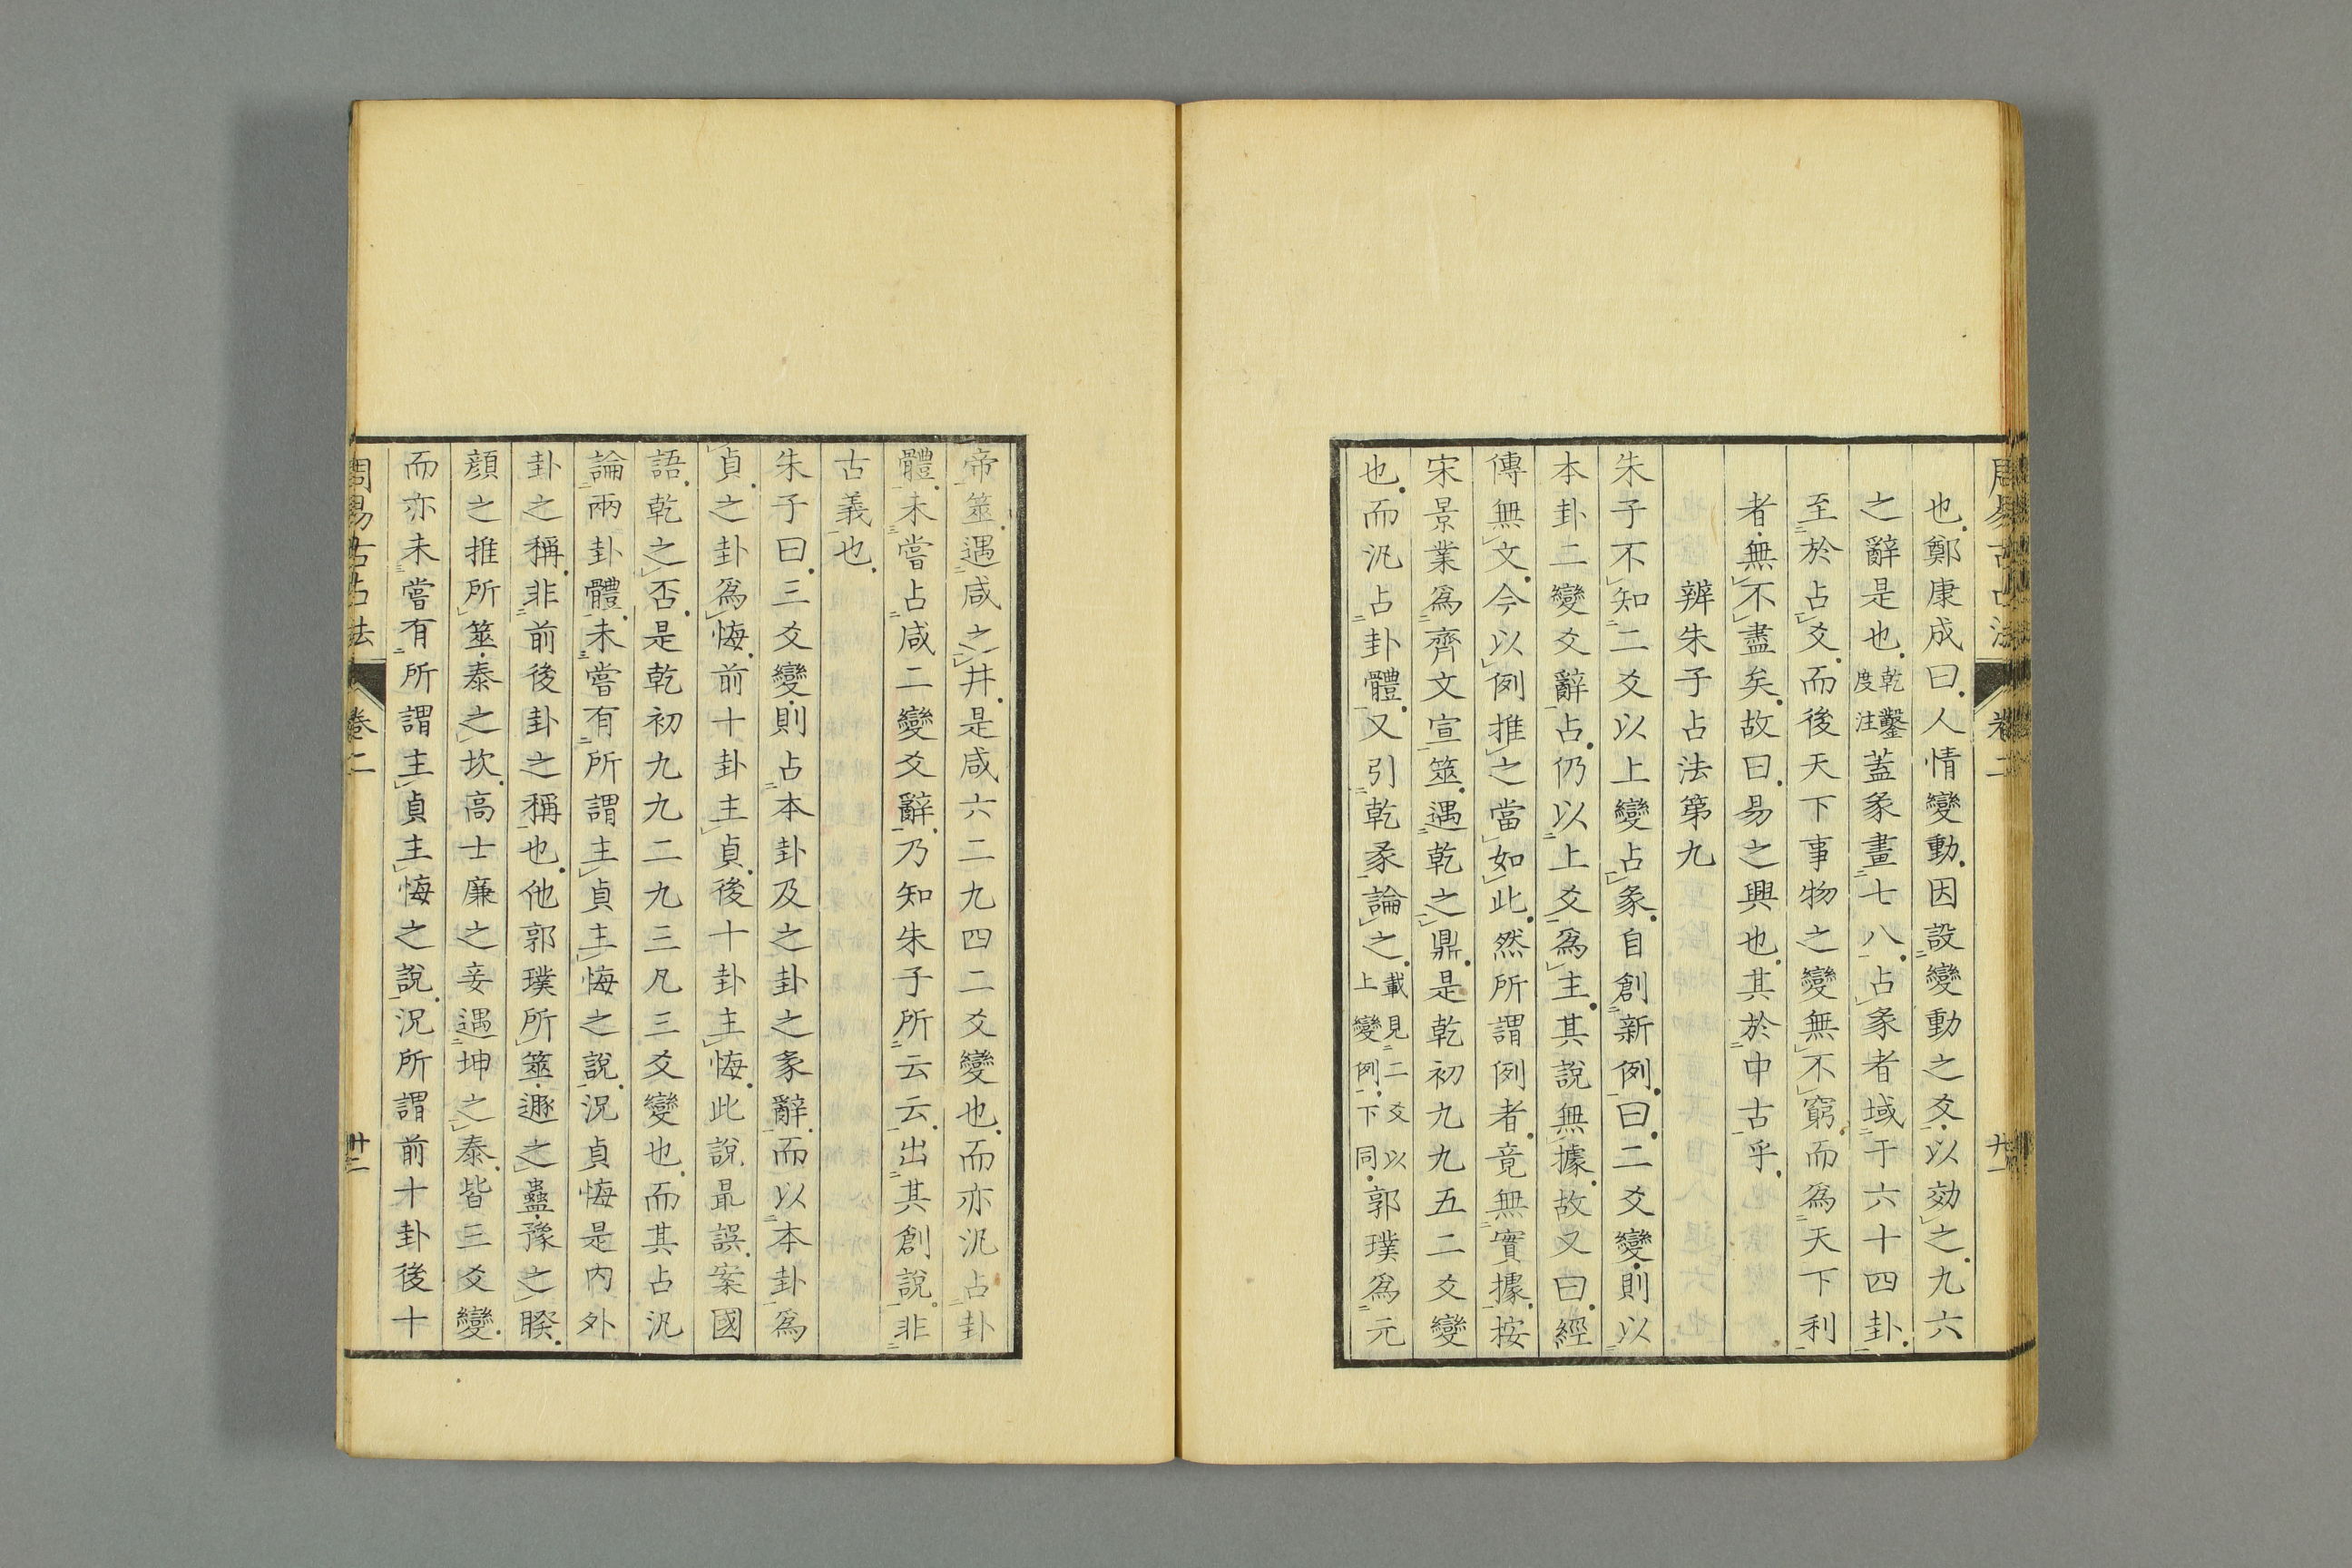 周易古占法 卷二 廿一
也鄭康成曰人情變動因設變動之爻以効之九六
之辭是也乾鑿度注蓋彖畫七八占彖者域于六十四卦
至於占爻而後天下事物之變無不窮而為天下利
者無不盡矣故曰易之興也其於中古乎
辨朱子占法第九
朱子不知二爻以上變占彖自創新例曰二爻變則以
本卦二變爻辭占仍以上爻為主其說無據故又曰經
傳無文今以例推之當如此然所謂例者竟無實據按
宋景業為齊文宣筮遇乾之鼎是乾初九九五二爻變
也而汎占卦體又引乾彖論之載見二爻以上變例下同郭璞為元
帝筮遇咸之井是咸六二九四二爻變也而亦汎占卦
體未嘗占咸二變爻辭乃知朱子所云云出其創說非
古義也
朱子曰三爻變則占本卦及之卦之彖辭而以本卦為
貞之卦為悔前十卦主貞後十卦主悔此說最誤案國
語乾之否是乾初九九二九三凡三爻變也而其占汎
論兩卦體未嘗有所謂主貞主悔之說況貞悔是內外
卦之稱非前後卦之稱也他郭璞所筮遯之蠱豫之睽
顏之推所筮泰之坎高士廉之妾遇坤之泰皆三爻變
而亦未嘗有所謂主貞主悔之說況所謂前十卦後十
周易古占法 卷二 廿二